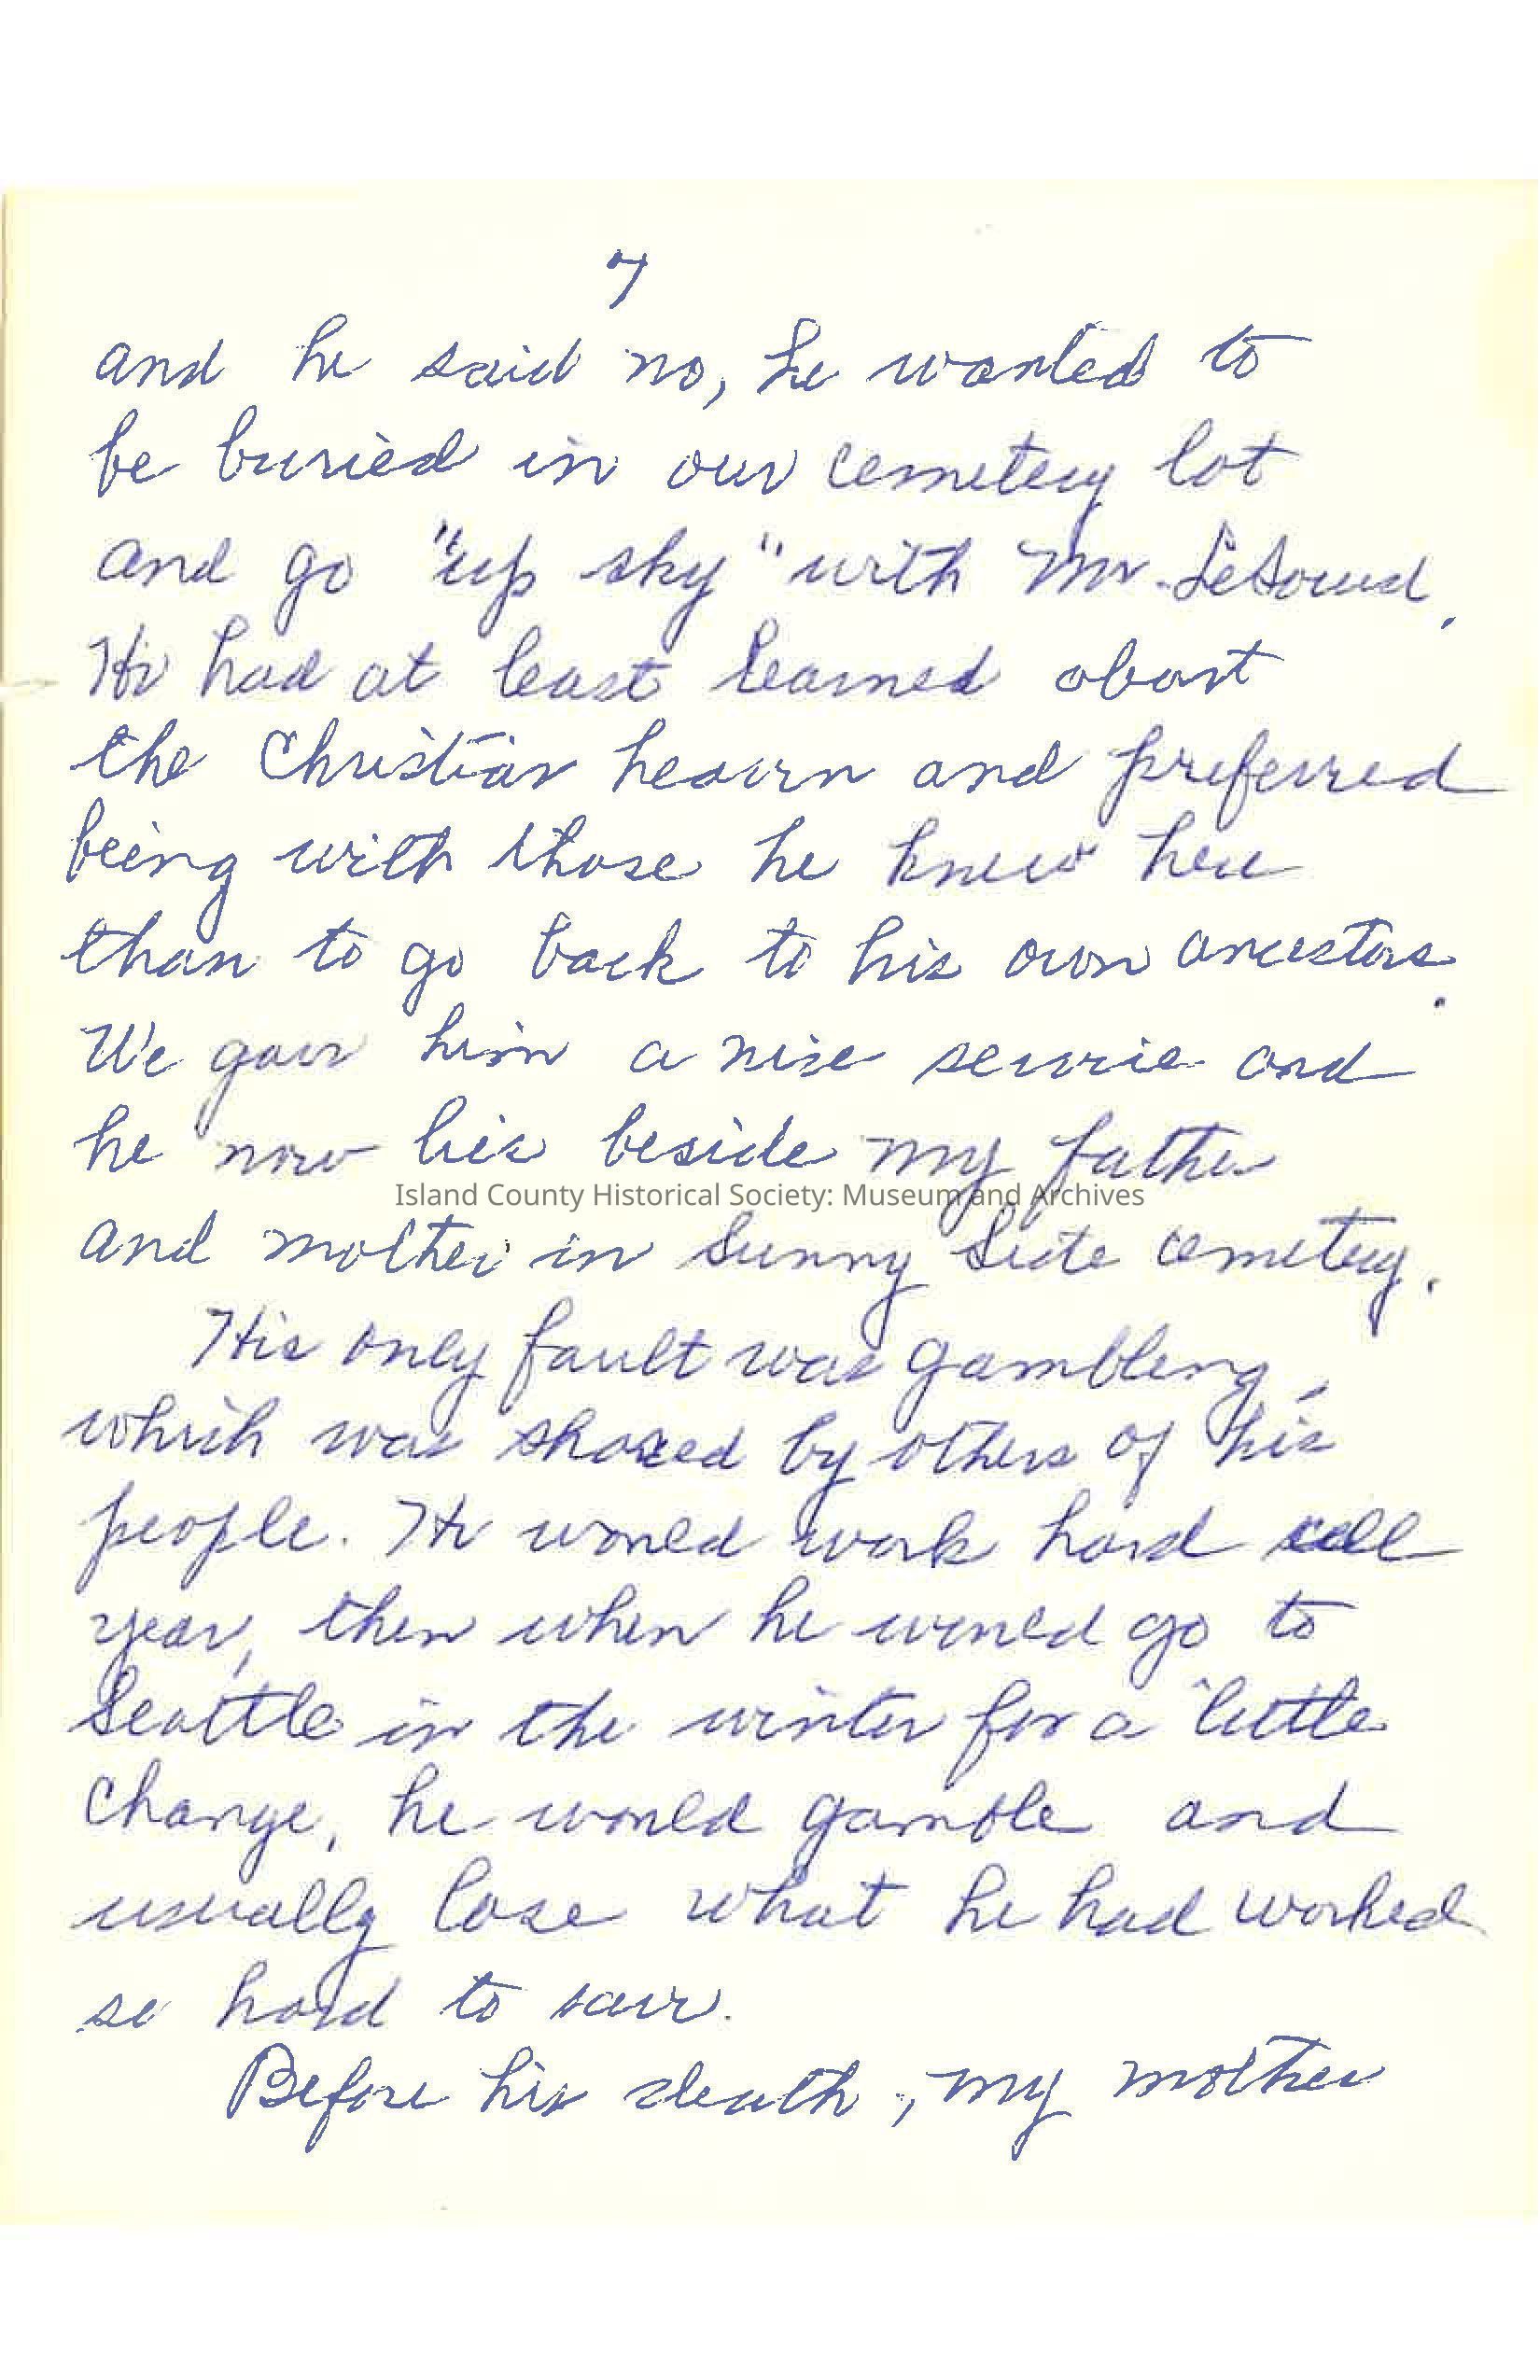 7
and he said no, he wanted to
be buried in our cemetery lot
and go "up sky" with Mr. LeSourd.
He had at least learned about
the Christian heaven and preferred
being with those he knew here
than to go back to his own ancestors.
We gave him a nice service and
he now lies beside my father
Island County Historical Society: Museum and Archives
and mother in Sunny Side cemetery.
His only fault was gambling,
which was shared by others of his
people. He would work hard all
year, then when he would go to
Seattle in the winter for a little
change, he would gamble and
usually lose what he had worked
so hard to save.
Before his death, my mother